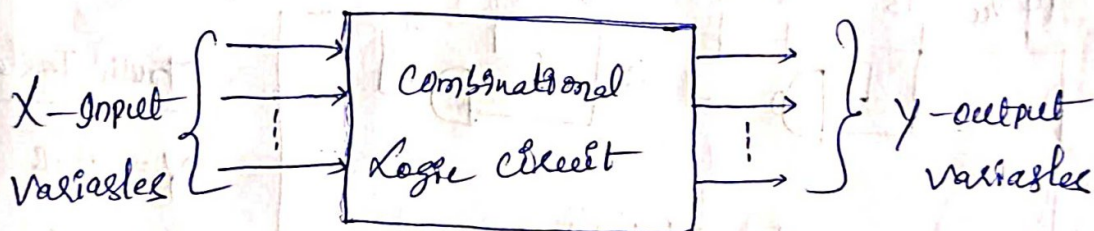 X-Input
variables
Combinational
Logic circuit
Y-output
variables